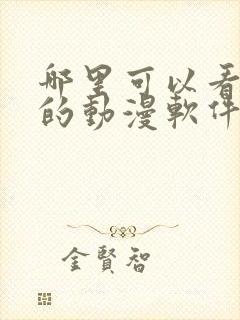 哪里可以看
的動漫軟件
金賢智